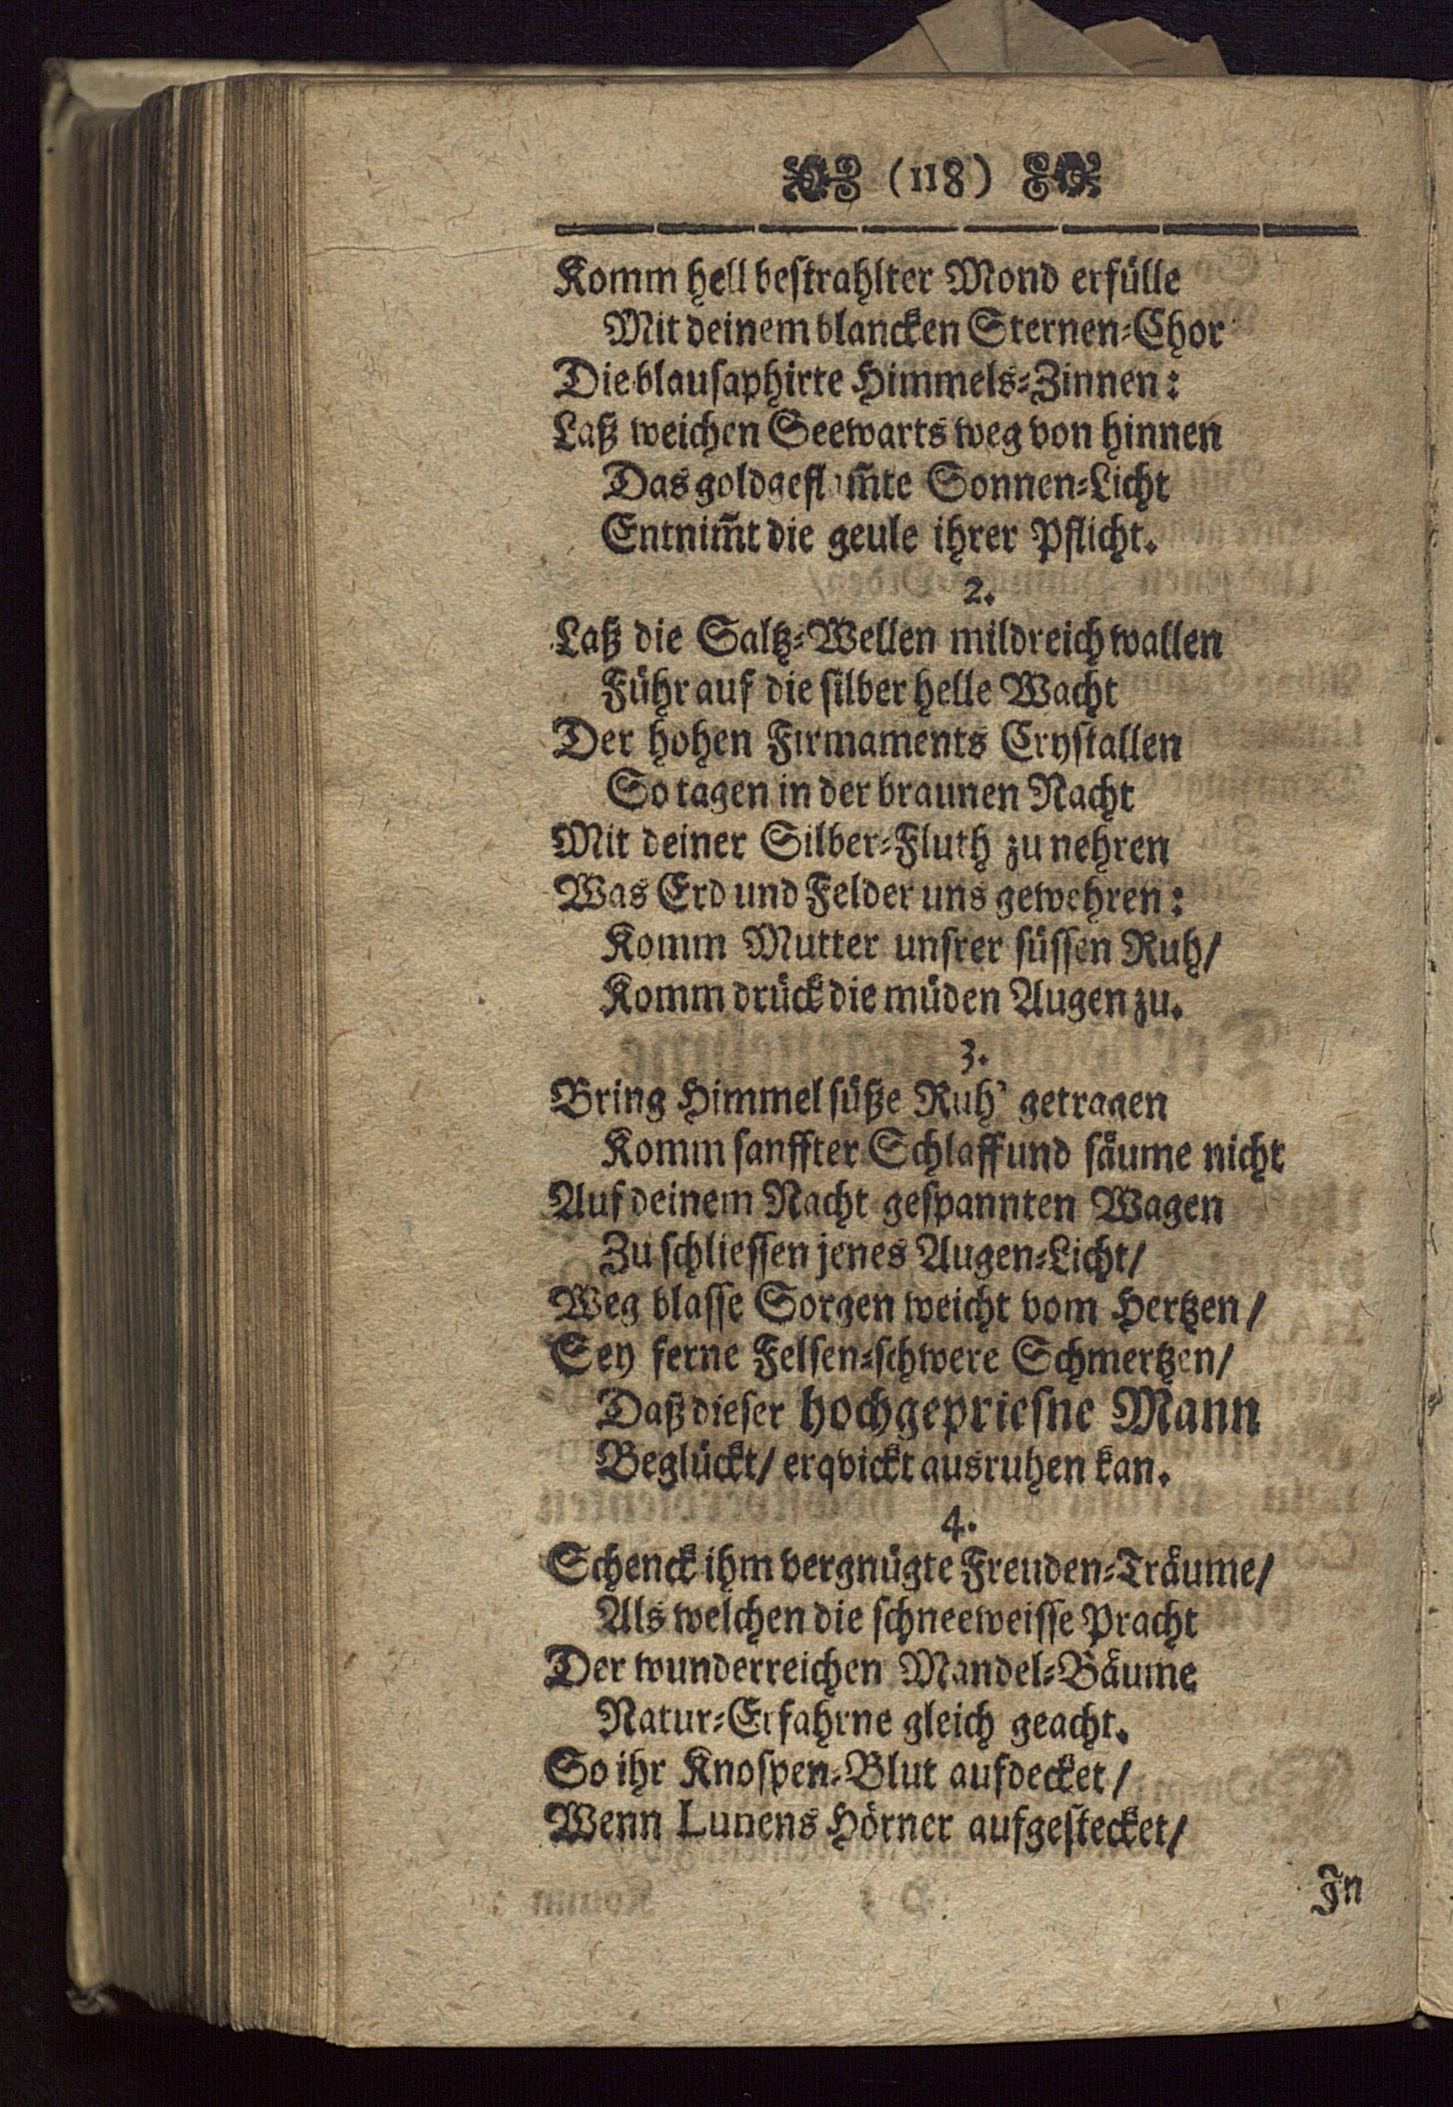 (118)
Komm hell bestrahlter Mond erfülle
Mit deinem blancken Sternen-Chor
Die blausaphirte Himmels-Zinnen:
Laß weichen Seewarts weg von hinnen
Das goldgeflam̃te Sonnen-Licht
Entnim̃t die geule ihrer Pflicht.
2.
Laß die Saltz-Wellen mildreich wallen
Führ auf die silber helle Wacht
Der hohen Firmaments Crystallen
So tagen in der braunen Nacht
Mit deiner Silber-Fluth zu nehren
Was Erd und Felder uns gewehren:
Komm Mutter unsrer süssen Ruh/
Komm drück die müden Augen zu.
3.
Bring Himmel süße Ruh' getragen
Komm sanffter Schlaff und säume nicht
Auf deinem Nacht gespannten Wagen
Zu schliessen jenes Augen-Licht/
Weg blasse Sorgen weicht vom Hertzen/
Sey ferne Felsen-schwere Schmertzen/
Daß dieser hochgepriesne Mann
Beglückt/ erqvickt ausruhen kan.
4.
Schenck ihm vergnügte Freuden-Träume/
Als welchen die schneeweisse Pracht
Der wunderreichen Mandel-Bäume
Natur-Erfahrne gleich geacht.
So ihr Knospen-Blut aufdecket/
Wenn Lunens Hörner aufgestecket/
In